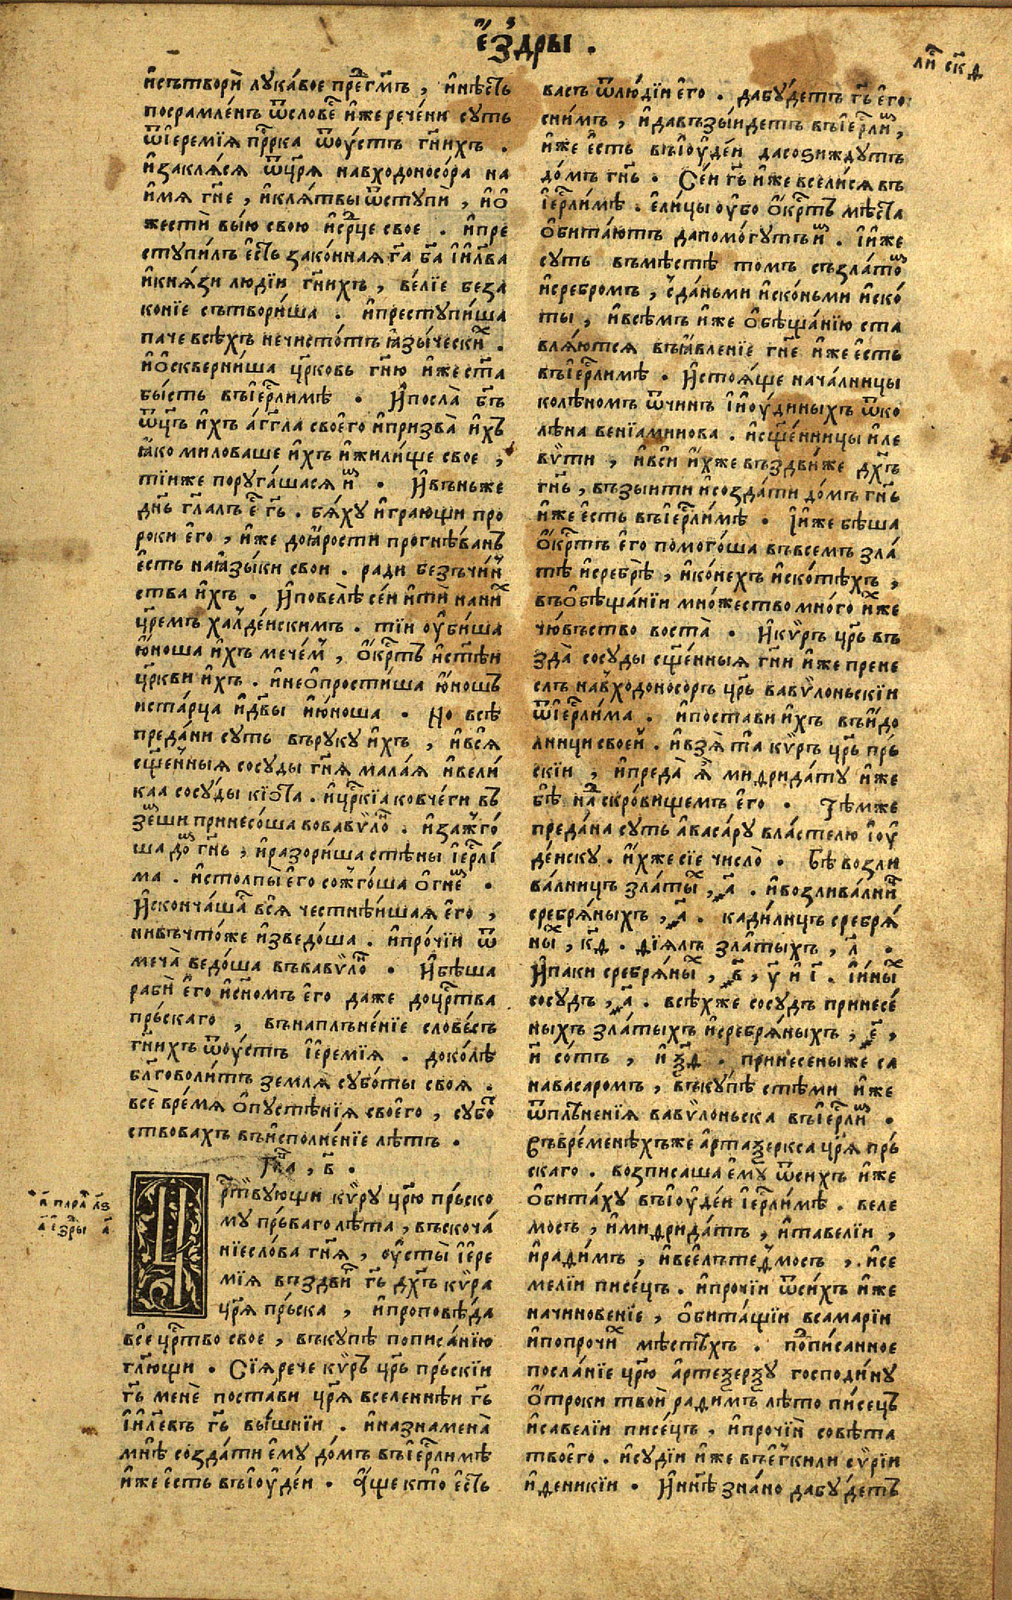 є҆́здры .
ли́ ск҃д
и҆сътворѝ лука́вое пре́дг҇мъ , и҆нѣ́сть
посрамле́нъ ѿслове́ и҆́же рече́ни суть
ѿі҆еремі́ѧ пр҇рка ѿоу҆́стъ гн҃ихъ .
и҆закля́сѧ ѿцр҃ѧ навходоносо́ра на
и҆́мѧ гн҃е , и҆кля́твы ѿступѝ , и҆ѡ
жестѝ вы́ю свою и҆ср҃це свое . и҆пре
ступи́лъ є҆́сть зако́ннаѧ г҃а б҃а і҆и҃лва
и҆кня́зи лю́дїи гн҃ихъ , ве́лїе беза
ко́нїе сътвори́ша . и҆преступи́ша
паче всѣ́хъ нечисто́тъ ꙗ҆зы́ческих .
и҆ѡ҆скверни́ша цр҃ковь гн҃ю и҆́же ст҃а
бы́сть въі҆ер҃ли́мѣ . И҆посла̀ бг҃ъ
ѿц҃ъ и҆́хъ а҆́гг҃ла своего̀ и҆призва̀ и҆́хъ
ꙗ҆́ко миловаше и҆́хъ и҆жили́ще свое ,
ті́иже поруга́шасѧ и҆м . И҆въньже
дн҃ь гл҃алъ є҆ г҃ь . бя́ху и҆гра́ющи про
роки є҆го , и҆́же доꙗ҆́рости прогнѣ́ванъ
є҆́сть наꙗ҆зы́ки свои . ра́ди безъчи́н
ства и҆́хъ . И҆повелѣ̀ се́и и҆тѝ нани́х
цр҃емъ халде́йскимъ . ті́и оу҆би́ша
ю҆́ноша и҆́хъ мече́м , ѻ҆́крт҇ъ и҆ст҃ѣи
цр҃кви и҆́хъ . и҆неѡ҆прости́ша ю҆́ношъ
и҆ста́рца и҆дв҃ы и҆ю҆́ноша . Но всѣ̀
преда́ни суть въру́ку и҆́хъ , и҆всѧ̀
сщ҃е́нныѧ сосу́ды гн҃ѧ ма́лаѧ и҆вели́
каа сосу́ды кіѡ́та . и҆цр҃кіа ковче́ги въ
зе́мши принесо́ша вовавѷло́ . и҆зажго́
ша до́м гн҃ь , и҆разори́ша стѣ́ны і҆ер҃ли́
ма . и҆столпы̀ є҆го сожго́ша ѻ҆гне́м .
И҆сконча́ша всѧ̀ честнѣ́ишаѧ є҆го ,
нивъчто́же и҆зведо́ша . и҆про́чїи ѿ
меча̀ ведо́ша въвавѷло́ . И҆бѣ́ша
рабѝ є҆го и҆сн҃омъ є҆го да́же доцр҃тва
пръ́скаго , внаплъне́нїе слове́съ
гн҃ихъ ѿоу҆́стъ і҆еремі́ѧ . доко́лѣ
бл҃говоли́тъ землѧ̀ субо́ты своѧ̀ .
всѐ вре́мѧ ѻ҆пустѣ́нїѧ своего̀ , субо́
ствовахъ въи҆сполне́нїе лѣ́тъ .
Гла , в҃ .
Ц
рт҃вующи кѷ́ру цр҃ю пръ́ско
му пръ́ваго лѣ́та , въсконча́
нїе сло́ва гн҃ѧ , оу҆сты̀ і҆ере
мі́ѧ въздви́ г҃ь дх҃ъ кѷ́ра
цр҃ѧ пръ́ска , и҆проповѣ́да
все цр҃тво свое , въку́пѣ пописа́нїю
гл҃ющи . Сїѧ̀ рече кѷ́ръ цр҃ь пръ́скїи
г҃ь менѐ поста́ви цр҃ѧ вселе́ннѣи г҃ь
і҆и҃левъ г҃ь вы́шнїи . и҆назнамена̀
мнѣ̀ созда́ти є҆му̀ до́мъ въі҆ер҃ли́мѣ
и҆́же є҆́сть въі҆оу҆де́и . а҆́ще кто̀ є҆́сть
а҃ пара҃ л҃ѕ
а҃ е҆зры а҃
васъ ѿлю́дїи є҆го . дабу́детъ г҃ь є҆го
сни́мъ , и҆давъзы́идетъ въі҆ер҃ли́м ,
и҆́же є҆́сть въі҆оу҆де́и дасози́ждутъ
до́мъ гн҃ь . Се́и г҃ь и҆́же всели́сѧ въ
і҆ер҃ли́мѣ . є҆ли́цы оу҆́бо ѻ҆́крт҇ъ мѣ́ста
ѻ҆бита́ютъ дапомо́гутъ и҆м . і҆и́же
суть въмѣ́стѣ томъ съзла́том
и҆сребромъ , здань́ми и҆ско́ньми и҆ско́
ты , и҆всѣ́мъ и҆́же ѡ҆бѣща́нїю ста
вля́ютсѧ въꙗ҆вле́нїе гн҃е и҆́же є҆́сть
въі҆ер҃ли́мѣ . И҆стоѧ́ще нача́лницы
колѣ́номъ ѿчимъ і҆иоу҆́диныхъ ѿко
лѣ́на венїами́нова . и҆сщ҃е́нницы и҆ле
вѷ́ти , и҆всѝ и҆́хже въздви́же дх҃ъ
гн҃ь , възы́ити и҆созда́ти до́мъ гн҃ь
и҆́же є҆́сть въі҆ер҃ли́мѣ . І҆и́же бѣ́ша
ѻ҆́крт҇ъ є҆го помого́ша въвсемъ зла́
тѣ и҆сребрѣ̀ , и҆ко́нехъ и҆ско́тѣхъ ,
въѡ҆бѣща́нїи мно́жество мно́го и҆́хже
чю́въство воста̀ . И҆кѷ́ръ цр҃ь въ
зда̀ сосу́ды сщ҃е́нныѧ гн҃и и҆́же прене
слъ навходоносо́ръ цр҃ь вавѷло́ньскїи
ѿі҆ер҃ли́ма . и҆поста́ви и҆́хъ въи҆до
лници свое́й . и҆взѧ́ та кѷ́ръ цр҃ь пръ́
скїи , и҆преда̀ ѧ҆̀ мидрида́ту и҆́же
бѣ̀ над скро́вищемъ є҆го . Тѣ́мже
преда́на суть а҆васа́ру вла́стелю і҆оу҆
де́иску . и҆́хже сїе число̀ . Бѣ̀ возли
ва́лницъ зла́ты , ҂а҃ . и҆возлива́лни
сребря́ныхъ , ҂а҃ . кади́лницъ сребря́
ны , к҃д . дїя́лъ зла́тыхъ , л҃ .
И҆па́ки сребря́ны , ҂в҃ , у҃ и҆ і҃ . і҆и́ны
сосу́дъ , ҂а҃ . всѣ́хже сосу́дъ принесе́
ныхъ зла́тыхъ и҆сребря́ныхъ , ҂е҃ ,
и҆ со́тъ , и҆ ѯ҃д . принесены́же са
навасаромъ , въку́пѣ стѣ́ми и҆́же
ѿплѣ́ненїѧ вавѷло́ньска въі҆ер҃ли́м .
Въвре́менѣхъже а҆ртаѯе́ркса цр҃ѧ пръ́
скаго . возписа́ша є҆му̀ ѿси́хъ и҆́же
ѻ҆бита́ху въі҆оу҆де́и і҆ер҃ли́мѣ . веле
мосъ , и҆мидрида́тъ , и҆тавелїи ,
и҆ради́мъ , и҆веелъте́мосъ , и҆се
ме́лїи писе́цъ . и҆про́чїи ѿси́хъ и҆́же
начинове́нїе , ѻ҆бита́щїи всамарі́и
и҆попро́чих мѣ́стѣхъ . подписанное
посла́нїе цр҃ю а҆ртеѯе́рѯу господи́ну
ѻ҆́троки твоѝ ради́мъ лѣто писе́цъ
и҆саве́лїи писе́цъ , и҆про́чїи совѣ́та
твоего̀ . и҆су́дїи и҆́же въе҆гкили сѷрі́и
и҆деники́и . И҆нн҃ѣ зна́но дабу́детъ